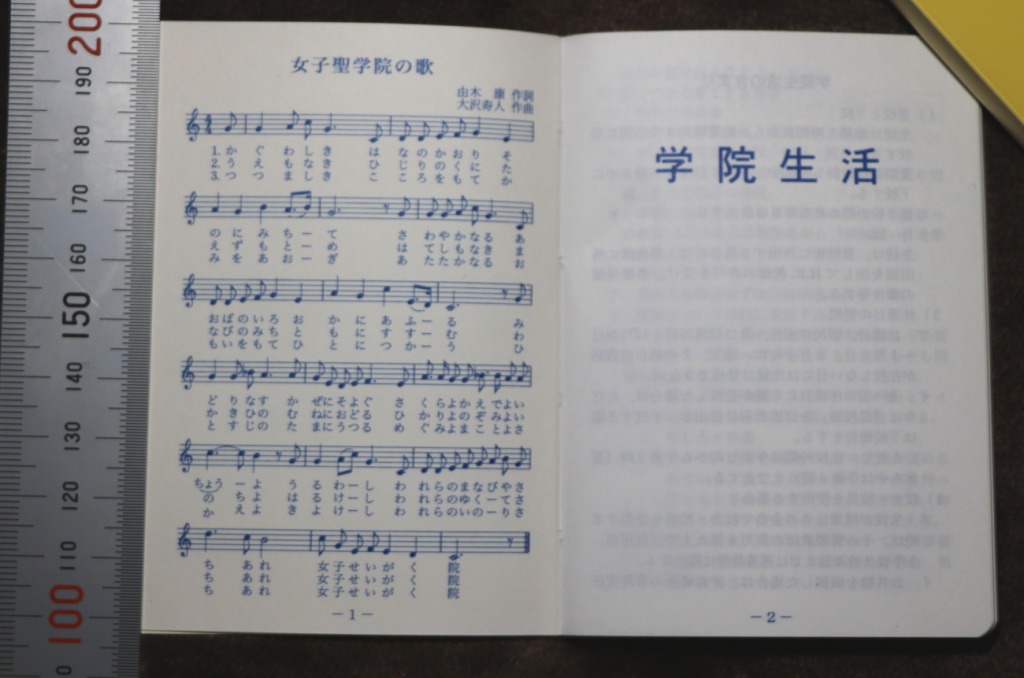 200
190
180
170
160
150
140
130
120
110
100
女子聖学院の歌
由木 康 作詞
大沢寿人 作曲
1. か ぐ わ し き は な の か お り そ
2. う え も な き ひ じ り の く に た
3. つ つ ま し き こ こ ろ を も て か
の に み ち ー て さ わ や か な る あ
え ず も と ー め は て し も な き ま
み を あ お ー ぎ あ た た か な る お
お ば の い ろ お か に あ ふ ー る み
な び の み ち と も に す す ー む わ
も い を も て ひ と に つ か ー う ひ
ど り な す か ぜ に そ よ ぐ さ く ら よ か え で よ い
か き ひ の む ね に お ど る ひ か り よ の ぞ み よ い
と す じ の た ま に う つ る め ぐ み よ ま こ と よ さ
ちょう ー よ う る わ ー し わ れ ら の ま な び や さ
の ち よ は る け ー し わ れ ら の ゆ く ー て さ
か え よ き よ け ー し わ れ ら の い の ー り さ
ち あ れ 女 子 せ い が く 院
ち あ れ 女 子 せ い が く 院
ち あ れ 女 子 せ い が く 院
－1－
学院生活
－2－